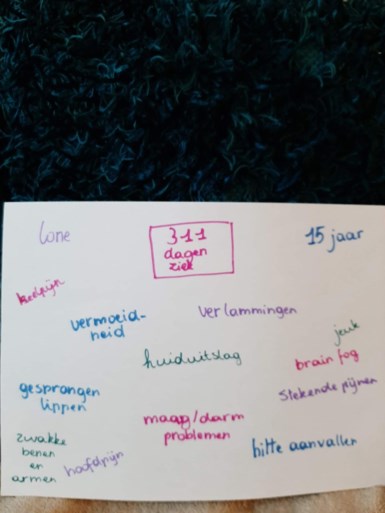 Lone
311
dagen
ziek
15 jaar
keelpijn
vermoeid-
heid
verlammingen
jeuk
huiduitslag
brain fog
gesprongen
lippen
stekende pijnen
maag/darm
problemen
hitte aanvallen
zwakke
benen
en
armen
hoofdpijn